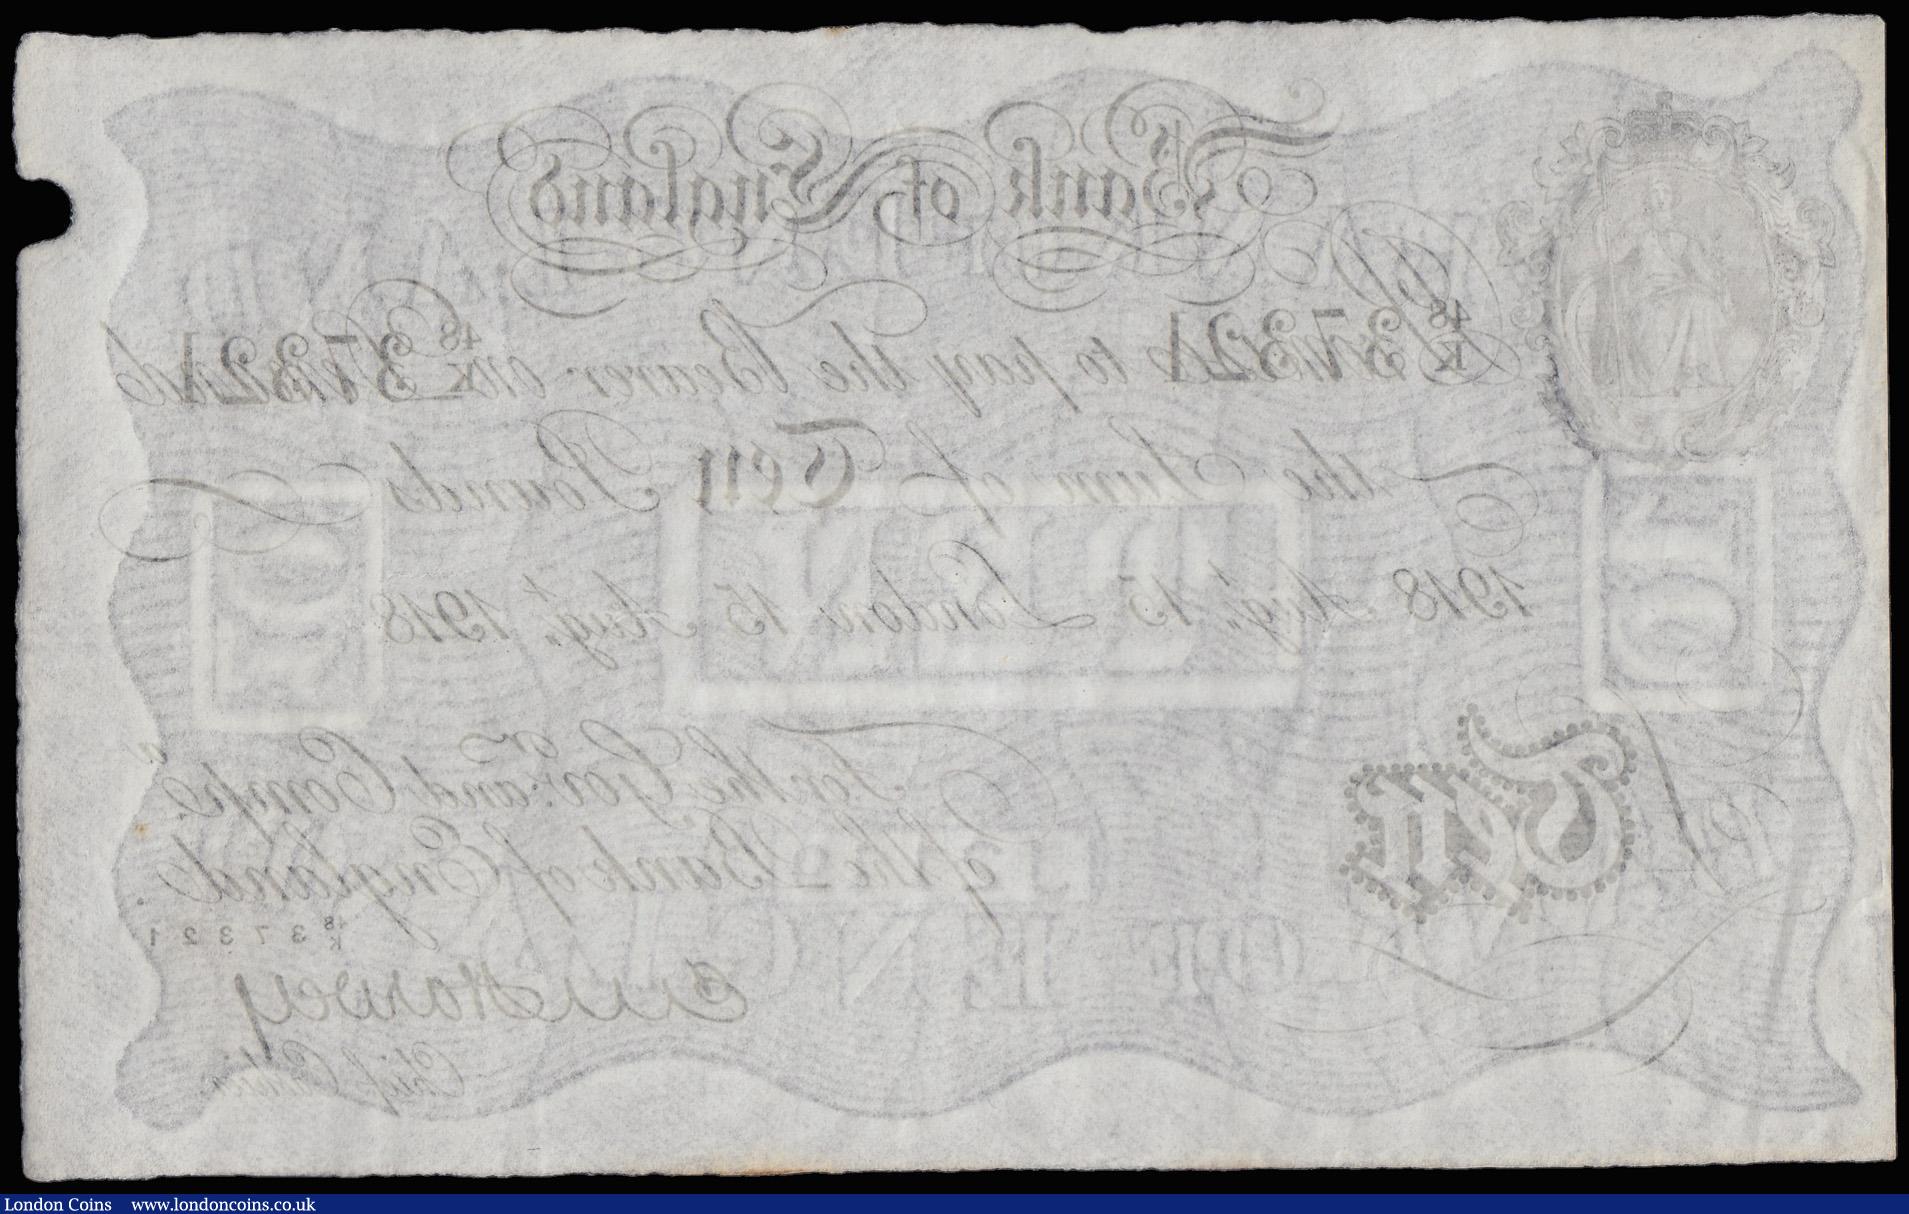 Bank of England
48/K 37321 to pay the Bearer on 48/K 37321
the Sum of Ten Pounds
1918 Augt. 15 London 15 Augt. 1918
TEN
10
10
For the Govr. and Compa.
of the Bank of England.
Ten
48/K 37321
Harvey
Chief Cashier
London Coins www.londoncoins.co.uk